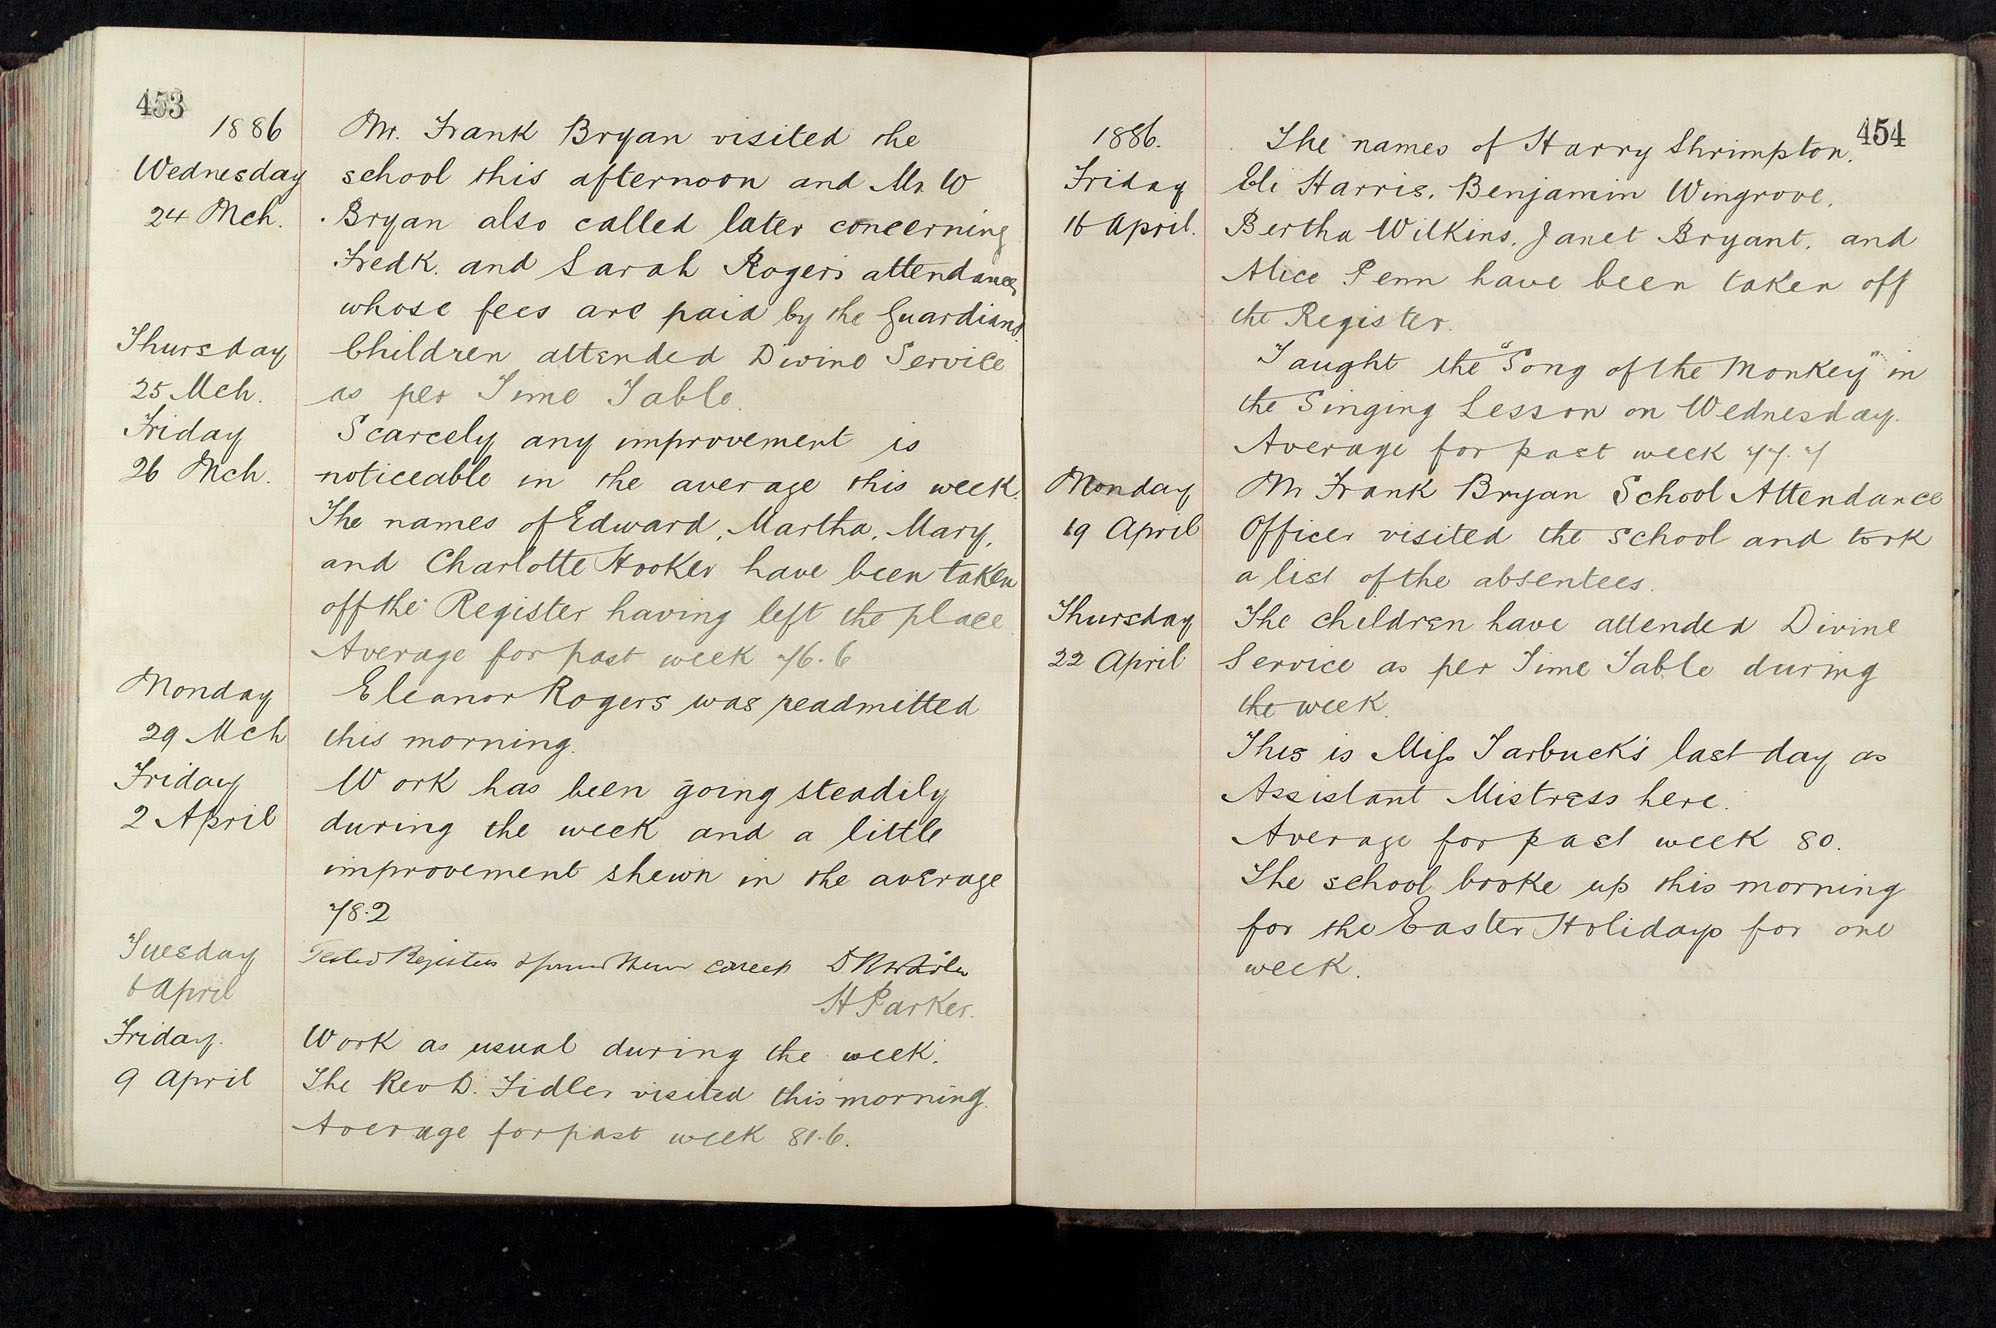 453
1886
Wednesday
24 Mch.
Mr. Frank Bryan visited the
school this afternoon and Mr W
Bryan also called later concerning
Fredk. and Sarah Rogers attendance
whose fees are paid by the Guardians.
Thursday
25 Mch.
Children attended Divine Service
as per Time Table.
Friday
26 Mch.
Scarcely any improvement is
noticeable in the average this week.
The names of Edward, Martha, Mary,
and Charlotte Hooker have been taken
off the Register having left the place
Average for past week 76.6
Monday
29 Mch
Eleanor Rogers was readmitted
this morning.
Friday
2 April
Work has been going steadily
during the week and a little
improvement shewn in the average
78.2
Tuesday
6 April
Tested Registers & found them correct
H Parker.
Friday.
9 April
Work as usual during the week.
The Rev D. Fidler visited this morning.
Average for past week 81.6.
454
1886.
Friday
16 April.
The names of Harry Shrimpton,
Eli Harris, Benjamin Wingrove,
Bertha Wilkins, Janet Bryant, and
Alice Penn have been taken off
the Register.
Taught the "Song of the Monkey" in
the Singing Lesson on Wednesday.
Average for past week 77.7
Monday
19 April
Mr Frank Bryan School Attendance
Officer visited the school and took
a list of the absentees.
Thursday
22 April
The children have attended Divine
Service as per Time Table during
the week.
This is Miss Tarbuck's last day as
Assistant Mistress here.
Average for past week 80.
The school broke up this morning
for the Easter Holidays for one
week.